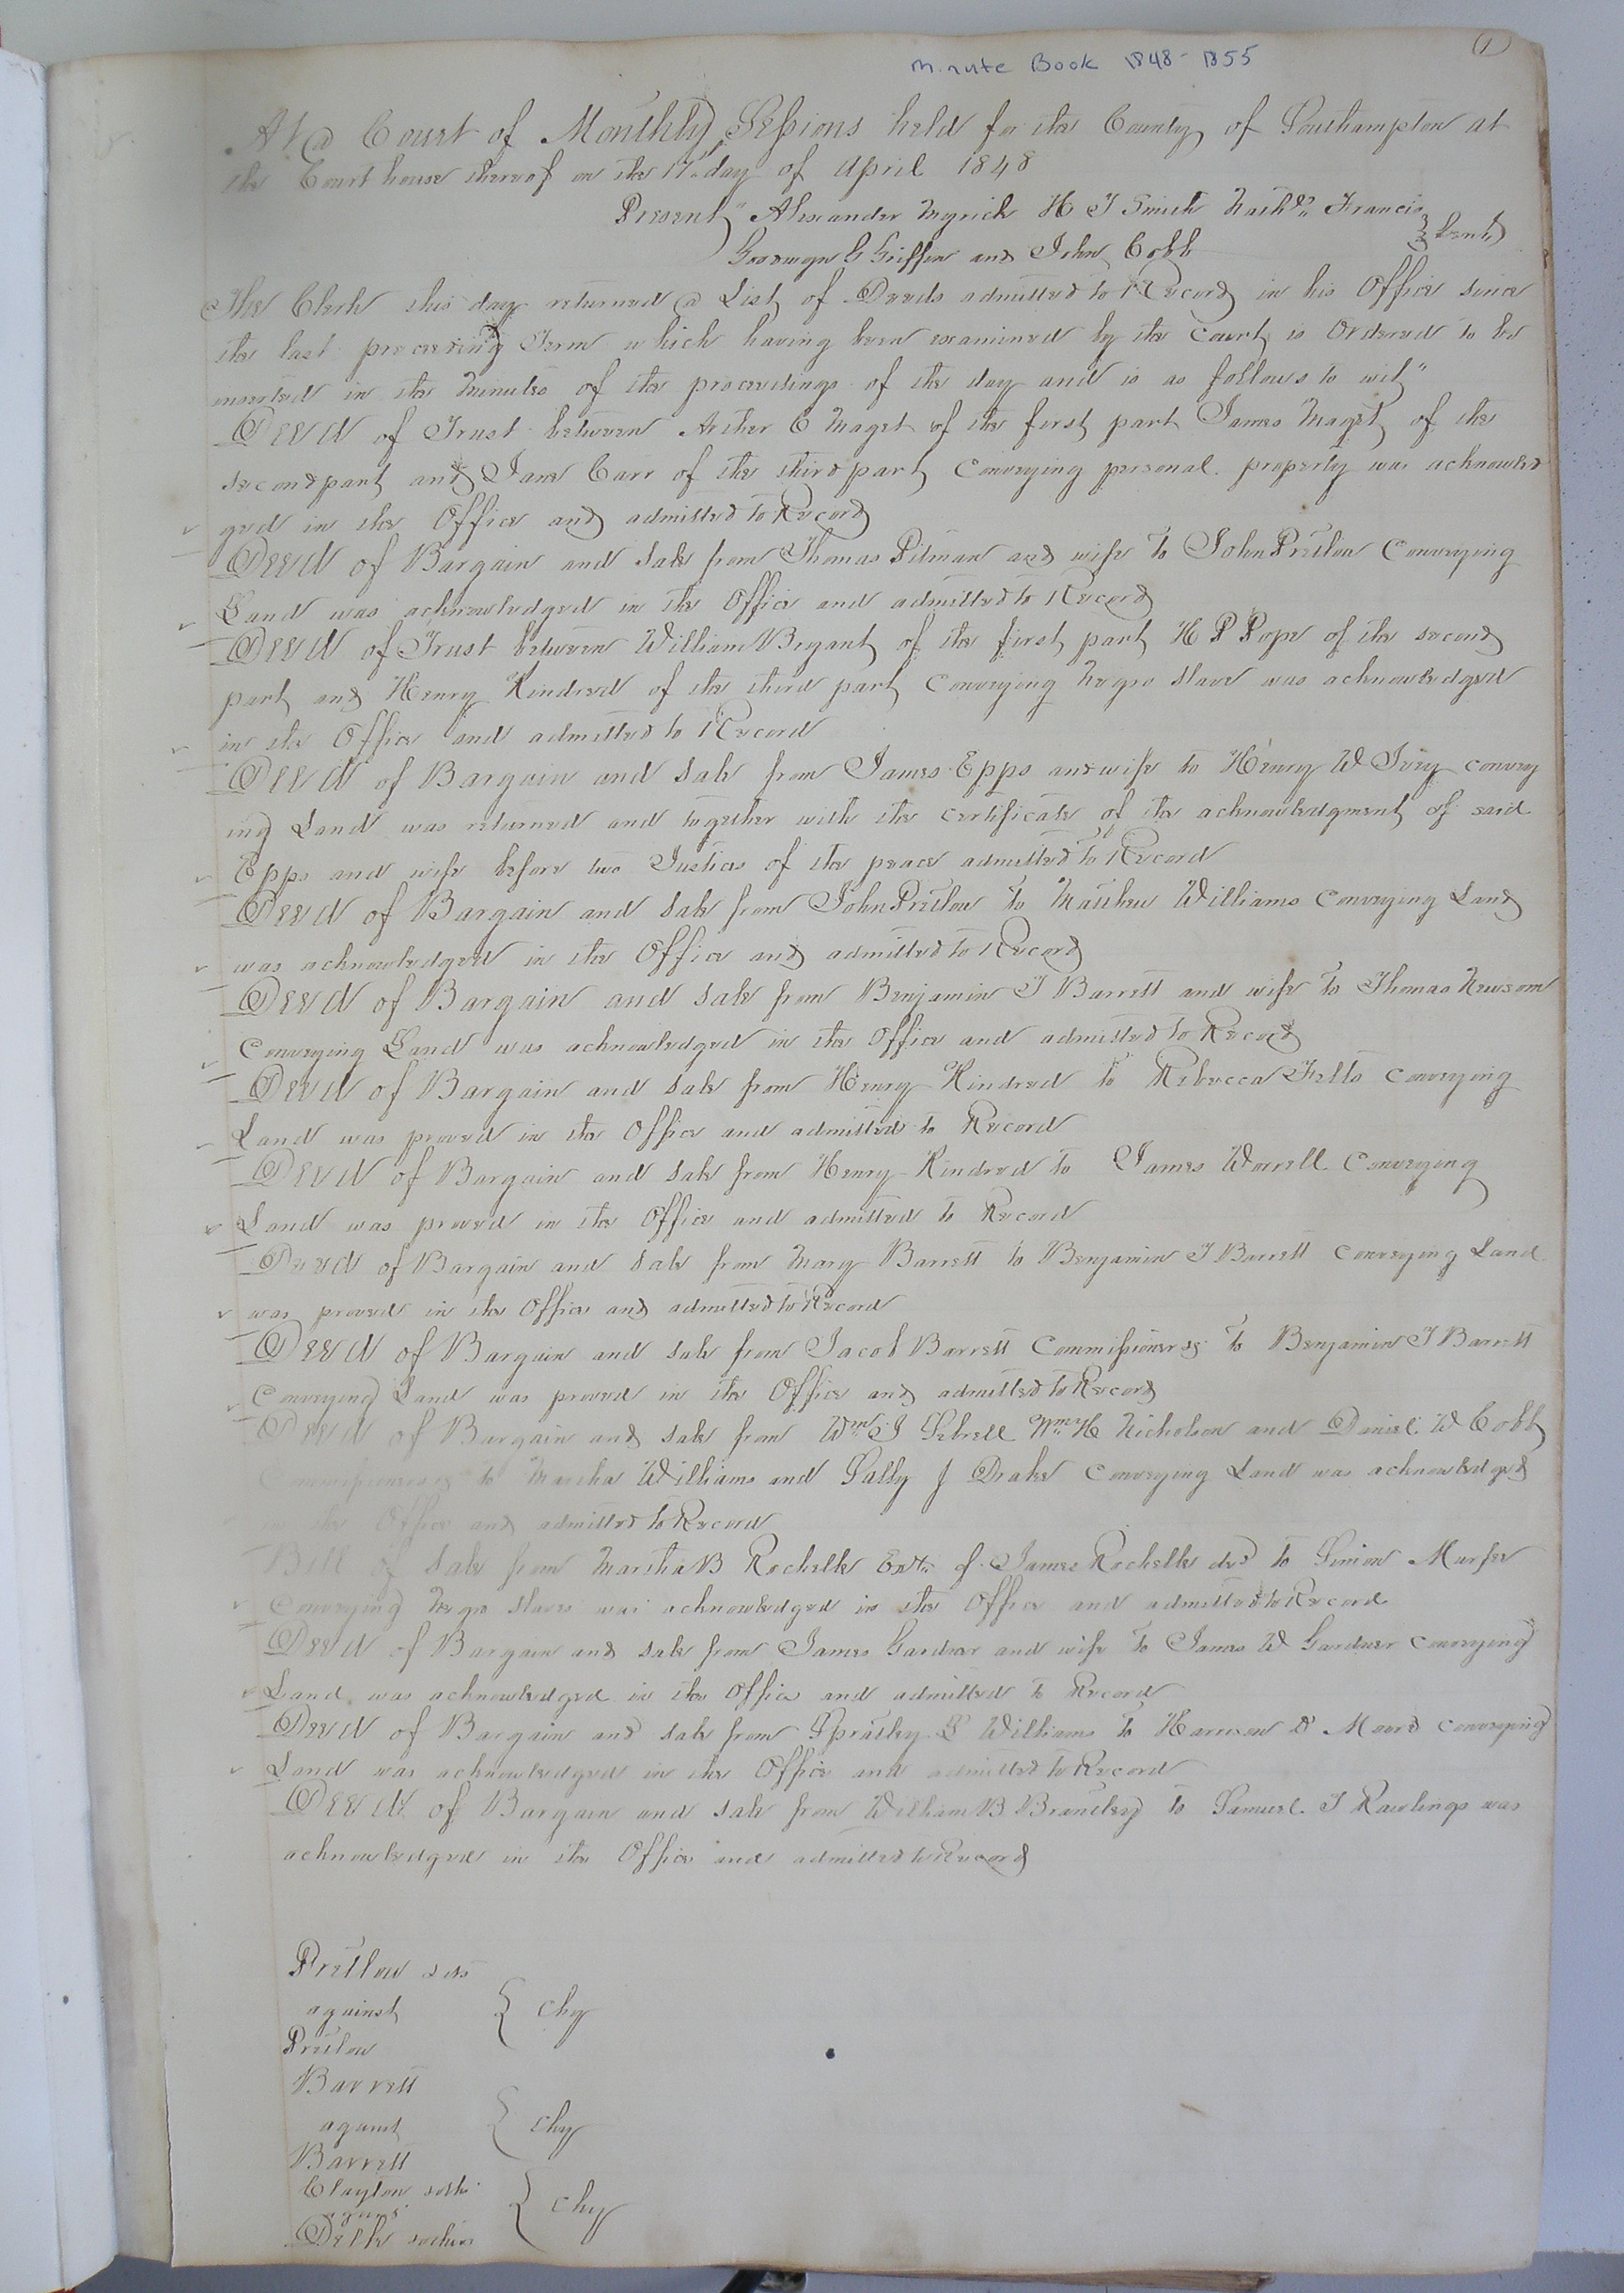 (1)
Minute Book 1848-1855
At a Court of Monthly Sessions held for the County of Southampton at
the Court house thereof on the 17th day of April 1848
Present Alexander Myrick H T Smith Nathl Francis
Goodwyn G Griffin and John Cobb } Gent
The Clerk this day returned a List of Deeds admitted to Record in his Office since
the last preceeding Term which having been examined by the Court is Ordered to be
inserted in the minutes of the proceedings of the day and is as follows to wit"
Deed of Trust between Arther C Maget of the first part James Maget of the
second part and Jane Carr of the third part Conveying personal property was acknowled
ged in the Office and admitted to Record
Deed of Bargain and Sale from Thomas Pitman and wife to John Pretlow Conveying
Land was acknowledged in the Office and admitted to Record
Deed of Trust between William Bryant of the first part H P Pope of the second
part and Henry Kindred of the third part Conveying Negro Slave was acknowledged
in the Office and admitted to Record
Deed of Bargain and Sale from James Epps and wife to Henry W Ivey convey
ing Land was returned and together with the certificate of the acknowledgment of said
Epps and wife before two Justices of the peace admitted to Record
Deed of Bargain and Sale from John Pretlow to Matthew Williams Conveying Land
was acknowledged in the Office and admitted to Record
Deed of Bargain and Sale from Benjamin T Barrett and wife to Thomas Newsom
Conveying Land was acknowledged in the Office and admitted to Record
Deed of Bargain and Sale from Henry Kindred to Rebecca Felts Conveying
Land was proved in the Office and admitted to Record
Deed of Bargain and Sale from Henry Kindred to James Worrell Conveying
Land was proved in the Office and admitted to Record
Deed of Bargain and Sale from Mary Barrett to Benjamin T Barrett Conveying Land
was proved in the Office and admitted to Record
Deed of Bargain and Sale from Jacob Barrett Commissioner &c to Benjamin T Barrett
Conveying Land was proved in the Office and admitted to Record
Deed of Bargain and Sale from Wm J Sebrell Wm H Nicholson and Daniel W Cobb
Commissioners &c to Martha Williams and Sally J Drake Conveying Land was acknowledged
in the Office and admitted to Record
Bill of Sale from Martha B Rochelle Extx of James Rochelle decd to Simon Murfee
Conveying Negro Slaves was acknowledged in the Office and admitted to Record
Deed of Bargain and Sale from James Gardner and wife to James W Gardner conveying
Land was acknowledged in the Office and admitted to Record
Deed of Bargain and Sale from Spratley Williams to Harrison Moore conveying
Land was acknowledged in the Office and admitted to Record
Deed of Bargain and Sale from William B Brantley to Samuel T Rawlings was
acknowledged in the Office and admitted to Record
Pretlow
against } Chy
Pretlow
Barrett
against } Chy
Barrett
Clayton
against } Chy
Delk